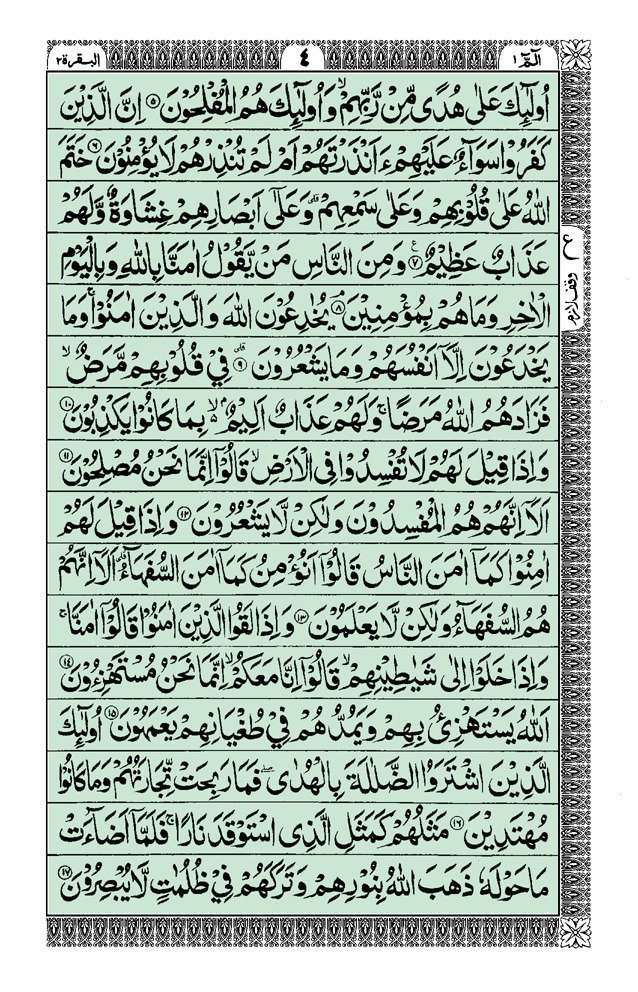 الٓمّٓ ١
٤
البقرة ٢
اُولٰٓئِكَ عَلٰى هُدًى مِّنْ رَّبِّهِمْ ۙ وَاُولٰٓئِكَ هُمُ الْمُفْلِحُوْنَ ۝٥ اِنَّ الَّذِيْنَ
كَفَرُوْا سَوَآءٌ عَلَيْهِمْ ءَاَنْذَرْتَهُمْ اَمْ لَمْ تُنْذِرْهُمْ لَا يُؤْمِنُوْنَ ۝٦ خَتَمَ
اللّٰهُ عَلٰى قُلُوْبِهِمْ وَعَلٰى سَمْعِهِمْ ؕ وَعَلٰٓى اَبْصَارِهِمْ غِشَاوَةٌ ؗ وَّلَهُمْ
عَذَابٌ عَظِيْمٌ ۝٧ وَمِنَ النَّاسِ مَنْ يَّقُوْلُ اٰمَنَّا بِاللّٰهِ وَبِالْيَوْمِ
ع
وقف لازم
الْاٰخِرِ وَمَا هُمْ بِمُؤْمِنِيْنَ ۝٨ يُخٰدِعُوْنَ اللّٰهَ وَالَّذِيْنَ اٰمَنُوْا ۚ وَمَا
يَخْدَعُوْنَ اِلَّاۤ اَنْفُسَهُمْ وَمَا يَشْعُرُوْنَ ۝٩ فِيْ قُلُوْبِهِمْ مَّرَضٌ ۙ
فَزَادَهُمُ اللّٰهُ مَرَضًا ۚ وَلَهُمْ عَذَابٌ اَلِيْمٌۢ ۙ۬ بِمَا كَانُوْا يَكْذِبُوْنَ ۝١٠
وَاِذَا قِيْلَ لَهُمْ لَا تُفْسِدُوْا فِي الْاَرْضِ ۙ قَالُوْۤا اِنَّمَا نَحْنُ مُصْلِحُوْنَ ۝١١
اَلَاۤ اِنَّهُمْ هُمُ الْمُفْسِدُوْنَ وَلٰكِنْ لَّا يَشْعُرُوْنَ ۝١٢ وَاِذَا قِيْلَ لَهُمْ
اٰمِنُوْا كَمَاۤ اٰمَنَ النَّاسُ قَالُوْۤا اَنُؤْمِنُ كَمَاۤ اٰمَنَ السُّفَهَآءُ ؕ اَلَاۤ اِنَّهُمْ
هُمُ السُّفَهَآءُ وَلٰكِنْ لَّا يَعْلَمُوْنَ ۝١٣ وَاِذَا لَقُوا الَّذِيْنَ اٰمَنُوْا قَالُوْۤا اٰمَنَّا ۚ
وَاِذَا خَلَوْا اِلٰى شَيٰطِيْنِهِمْ ۙ قَالُوْۤا اِنَّا مَعَكُمْ ۙ اِنَّمَا نَحْنُ مُسْتَهْزِءُوْنَ ۝١٤
اَللّٰهُ يَسْتَهْزِئُ بِهِمْ وَيَمُدُّهُمْ فِيْ طُغْيَانِهِمْ يَعْمَهُوْنَ ۝١٥ اُولٰٓئِكَ
الَّذِيْنَ اشْتَرَوُا الضَّلٰلَةَ بِالْهُدٰى ۪ فَمَا رَبِحَتْ تِّجَارَتُهُمْ وَمَا كَانُوْا
مُهْتَدِيْنَ ۝١٦ مَثَلُهُمْ كَمَثَلِ الَّذِى اسْتَوْقَدَ نَارًا ۚ فَلَمَّاۤ اَضَآءَتْ
مَا حَوْلَهٗ ذَهَبَ اللّٰهُ بِنُوْرِهِمْ وَتَرَكَهُمْ فِيْ ظُلُمٰتٍ لَّا يُبْصِرُوْنَ ۝١٧